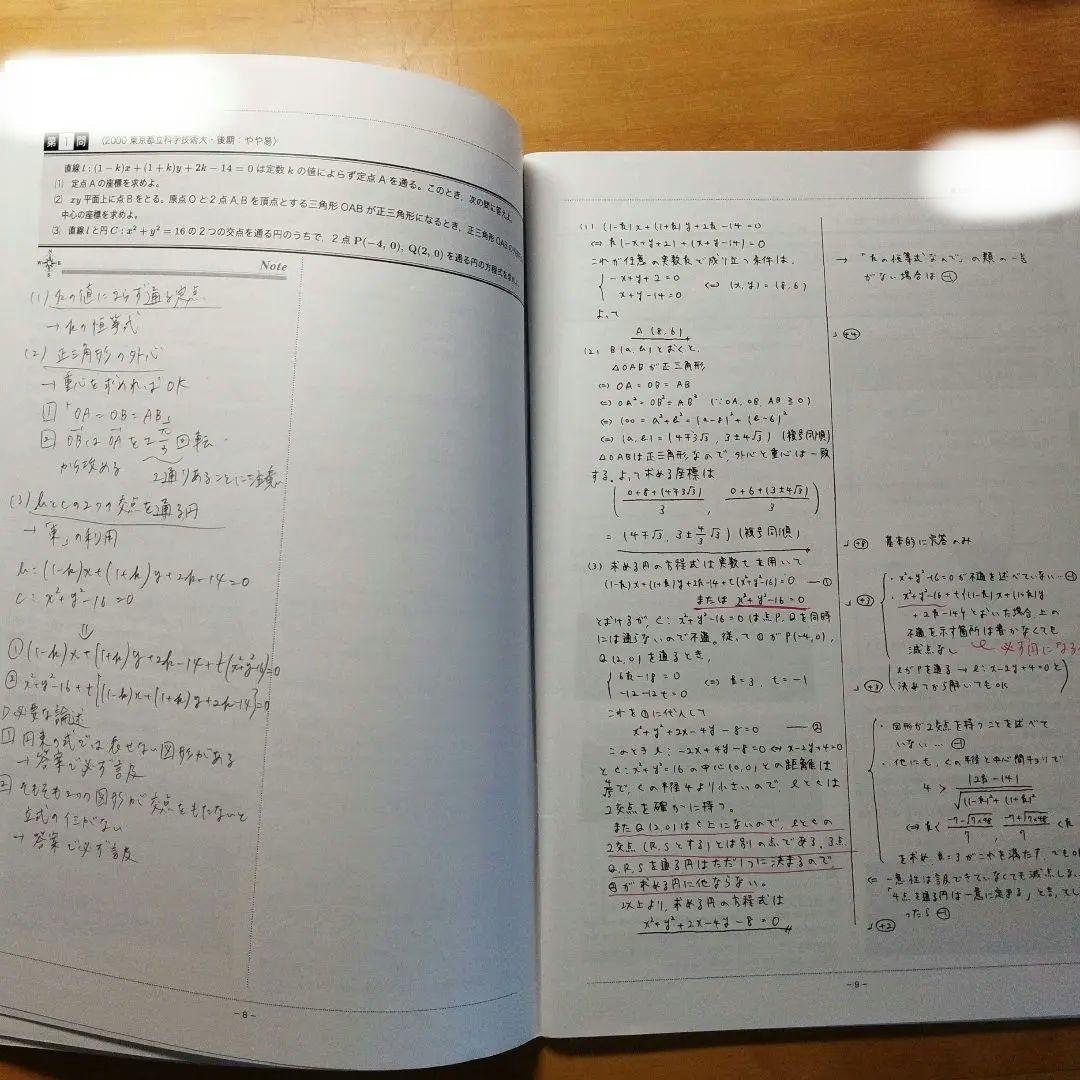 第 1 問 〈2000 東京都立科学技術大・後期：やや易〉
直線 l : (1−k)x+(1+k)y+2k−14=0 は定数 k の値によらず定点 A を通る。このとき，次の問に答えよ。
(1) 定点 A の座標を求めよ。
(2) xy 平面上に点 B をとる。原点 O と 2 点 A, B を頂点とする三角形 OAB が正三角形になるとき，正三角形 OAB の
中心の座標を求めよ。
(3) 直線 l と円 C : x²+y²=16 の 2 つの交点を通る円のうちで，2 点 P(−4, 0), Q(2, 0) を通る円の方程式を求めよ。
Note
(1) kの値によらず通る定点
→ kの恒等式
(2) 正三角形の外心
→ 重心を求めればOK
1 「OA=OB=AB」
2 OBはOAを±π/3回転
から攻める
2通りあることに注意
(3) lとCの2つの交点を通る円
→「束」の利用
l : (1-k)x+(1+k)y+2k-14=0
C : x²+y²-16=0
⇓
① (1-k)x+(1+k)y+2k-14+t(x²+y²-16)=0
② x²+y²-16+t{(1-k)x+(1+k)y+2k-14}=0
必要な論述
1 円束の式では表せない図形がある
→ 答案で必ず言及
2 そもそも2つの図形が交点をもたないと
立式の仕がない
→ 答案で必ず言及
- 8 -
(1) (1-k)x+(1+k)y+2k-14=0
⇔ k(-x+y+2)+(x+y-14)=0
これが任意の実数kで成り立つ条件は、
{ -x+y+2=0
x+y-14=0 ⇔ (x,y)=(8,6)
よって
A(8,6)
(2) B(a,b)とおくと、
△OABが正三角形
⇔ OA=OB=AB
⇔ OA²=OB²=AB² (∵OA,OB,AB≧0)
⇔ 100=a²+b²=(a-8)²+(b-6)²
⇔ (a,b)=(4∓3√3, 3±4√3) (複号同順)
△OABは正三角形なので、外心と重心は一致
する。よって求める座標は
( 0+8+(4∓3√3) / 3 , 0+6+(3±4√3) / 3 )
= (4∓√3, 3±4/3√3) (複号同順)
(3) 求める円の方程式は実数tを用いて
(1-k)x+(1+k)y+2k-14+t(x²+y²-16)=0 ―①
または x²+y²-16=0
とおけるが、C: x²+y²-16=0は点P,Qを同時
には通らないので不適。従って①がP(-4,0),
Q(2,0)を通るとき、
{ 6k-18=0
-12-12t=0 ⇔ k=3, t=-1
これを①に代入して
x²+y²+2x-4y-8=0 ―②
このとき l: -2x+4y-8=0 ⇔ x-2y+4=0
と C: x²+y²=16 の中心(0,0)との距離は
4/√5で、Cの半径4より小さいので、lとCは
2交点を確かに持つ。
またQ(2,0)はC上にないので、lとCの
2交点(R,Sとする)とは別の点である。3点
Q,R,Sを通る円はただ1つに決まるので
②が求める円に他ならない。
以上より、求める円の方程式は
x²+y²+2x-4y-8=0
→「kの恒等式なので」の類の一言
がない場合は -1
+4
+8 基本的に完答のみ
・x²+y²-16=0が不適を述べていない…-1
・x²+y²-16+t{(1-k)x+(1+k)y
+2k-14}とおいた場合、上の
不適を示す箇所は書かなくても
減点なし 必ず円になる
+3
(lがPを通る → l: x-2y+4=0と
決めてから解いてもOK)
+3
・図形が2交点を持つことを述べて
いない… -1
・他にも、Cの半径と中心間キョリで
4 > |2k-14| / √((1-k)²+(1+k)²)
⇔ k< (-7-√7×48)/7 , (-7+√7×48)/7 <k
を求め、k=3がこれを満たす、でもOK
⇐ 一意性は言及できていなくても減点しない
「4点を通る円は一意に定まる」と言って
ったら -1
+2
- 9 -